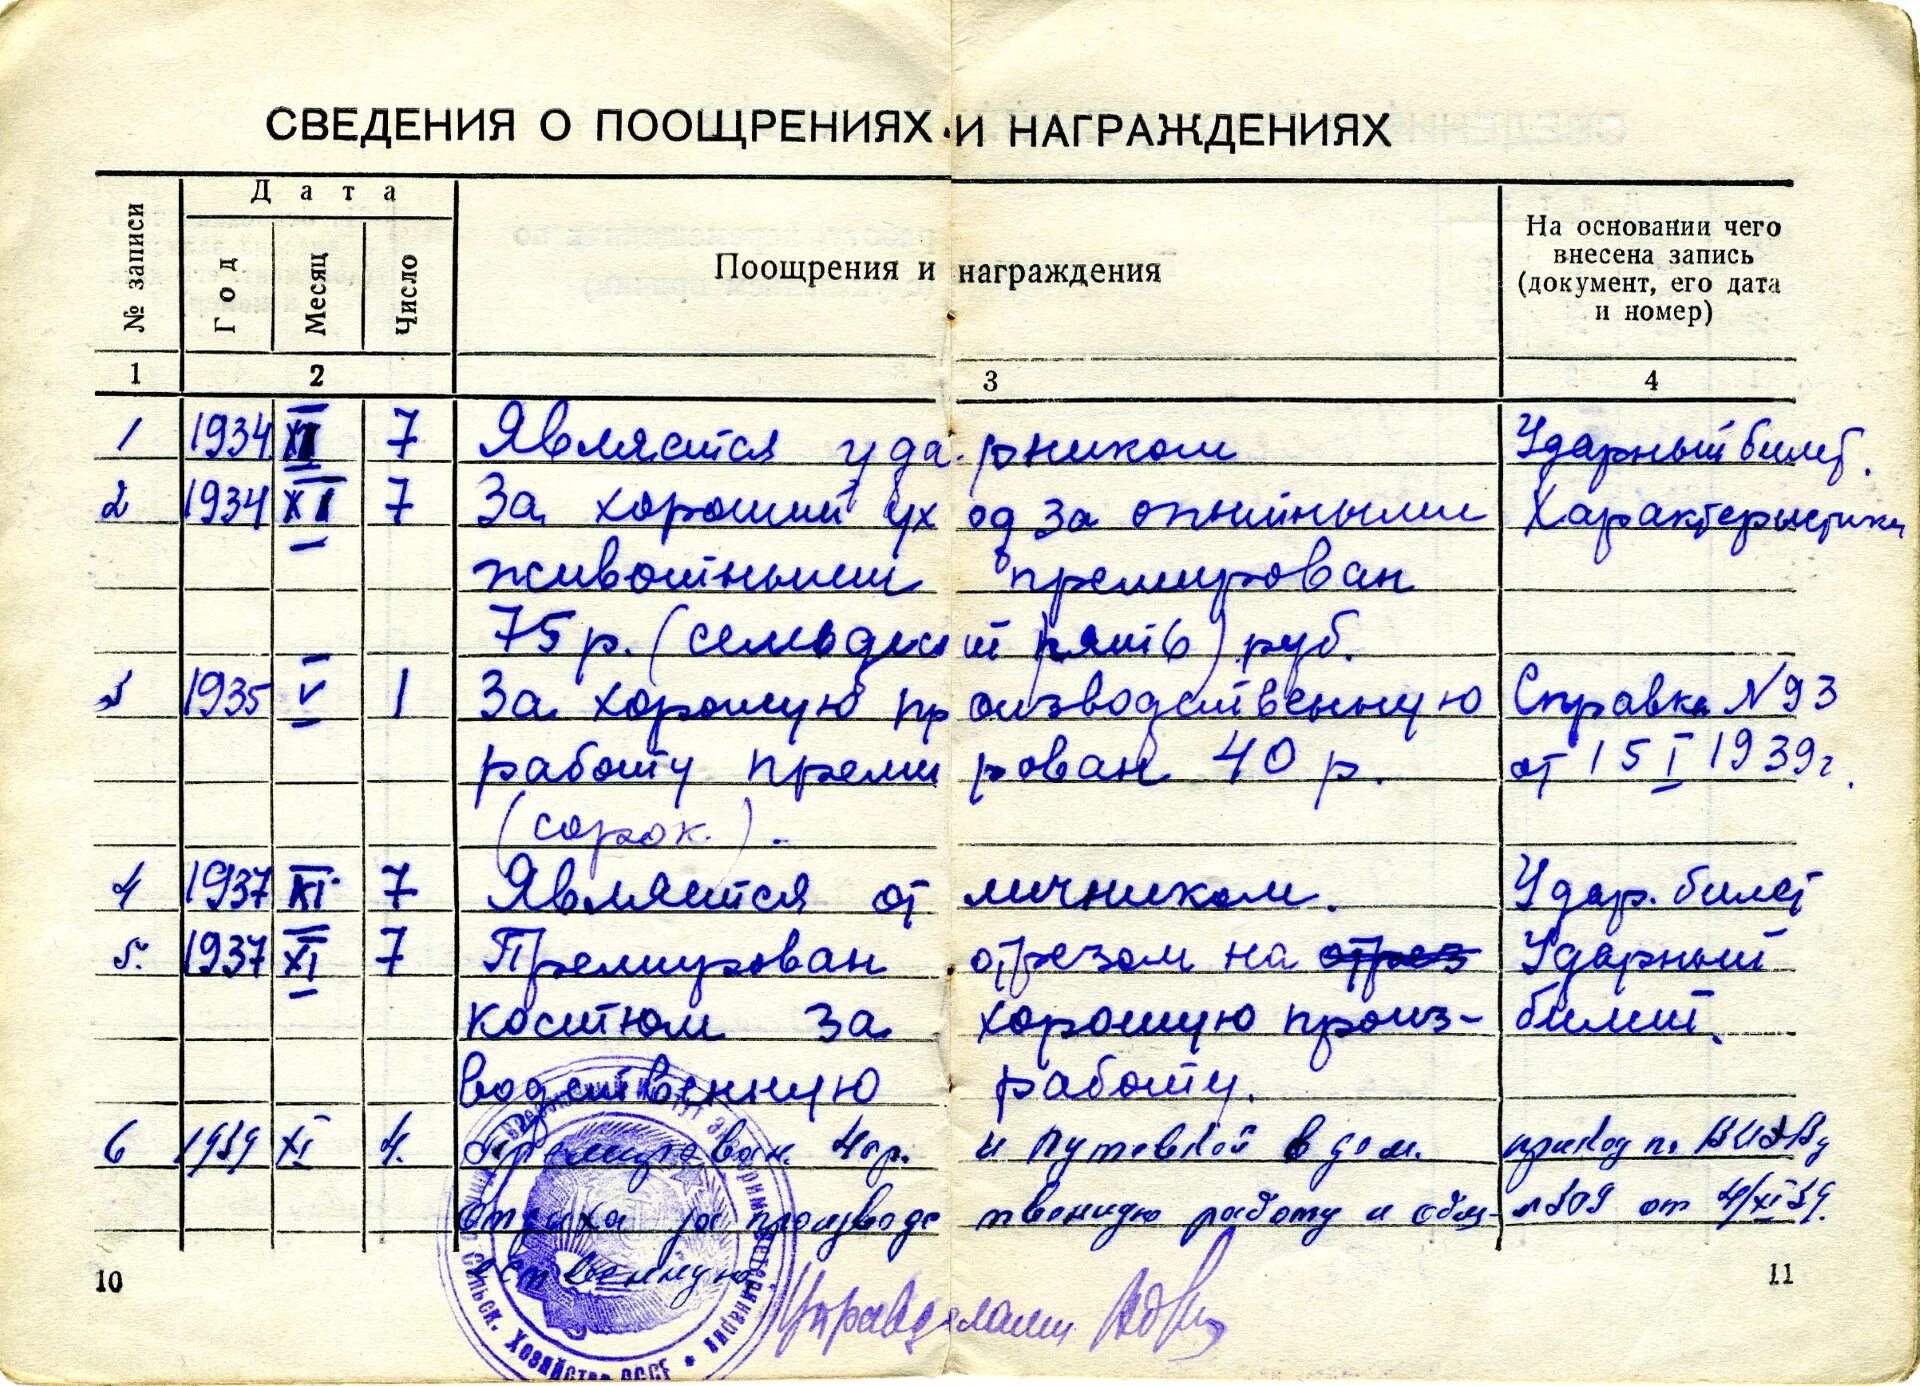 СВЕДЕНИЯ О ПООЩРЕНИЯХ И НАГРАЖДЕНИЯХ
№ записи
Дата
Год
Месяц
Число
Поощрения и награждения
На основании чего
внесена запись
(документ, его дата
и номер)
1 2 3 4
1 1934 XI 7 Является ударником Ударный билет.
2 1934 XI 7 За хороший уход за опытными Характеристики
животными премирован
75 р. (семьдесят пять) руб.
3 1935 V 1 За хорошую производственную Справка N 93
работу премирован 40 р. от 15 I 1939 г.
(сорок.).
4 1937 XI 7 Является отличником. Удар. билет
5. 1937 XI 7 Премирован отрезом на отрез Ударный
костюм за хорошую произ- билет.
водственную работу.
6 1939 XI 4. Премирован и путевкой в дом. приказ по ВИЭВу
отдыха за производственную работу и общ- N 309 от 4/XI 39.
ественную
Управделами
Сельск. Хозяйства СССР
10
11